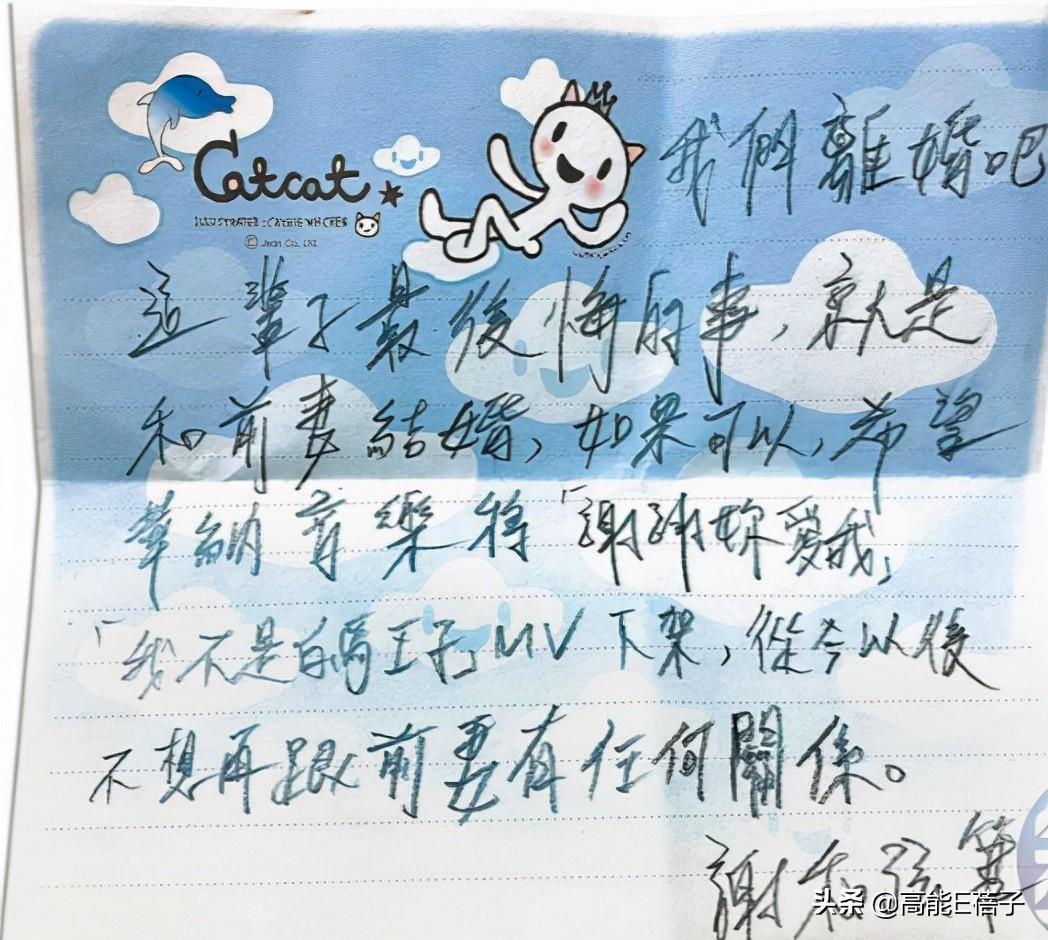 Catcat
© Jean Co., Ltd.
我們離婚吧
這輩子最後悔的事，就是
和前妻結婚，如果可以，希望
華納音樂將「謝謝妳愛我」
「我不是白馬王子」MV下架，從今以後
不想再跟前妻有任何關係。
謝和弦筆
头条 @高能E蓓子